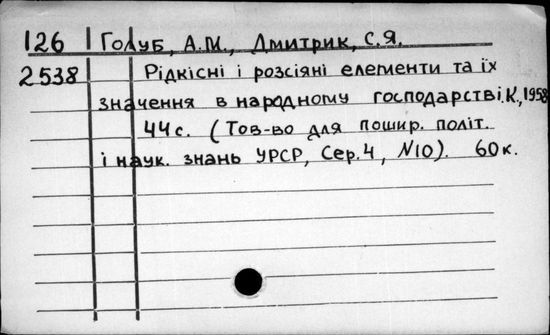 126 Голуб, А.М., Дмитрик, С.Я.
2538 Рідкісні і розсіяні елементи та їх
значення в народному господарстві. К., 1958
44с. (Тов-во для пошир. політ.
і наук. знань УРСР, Сер. 4, №10). 60к.